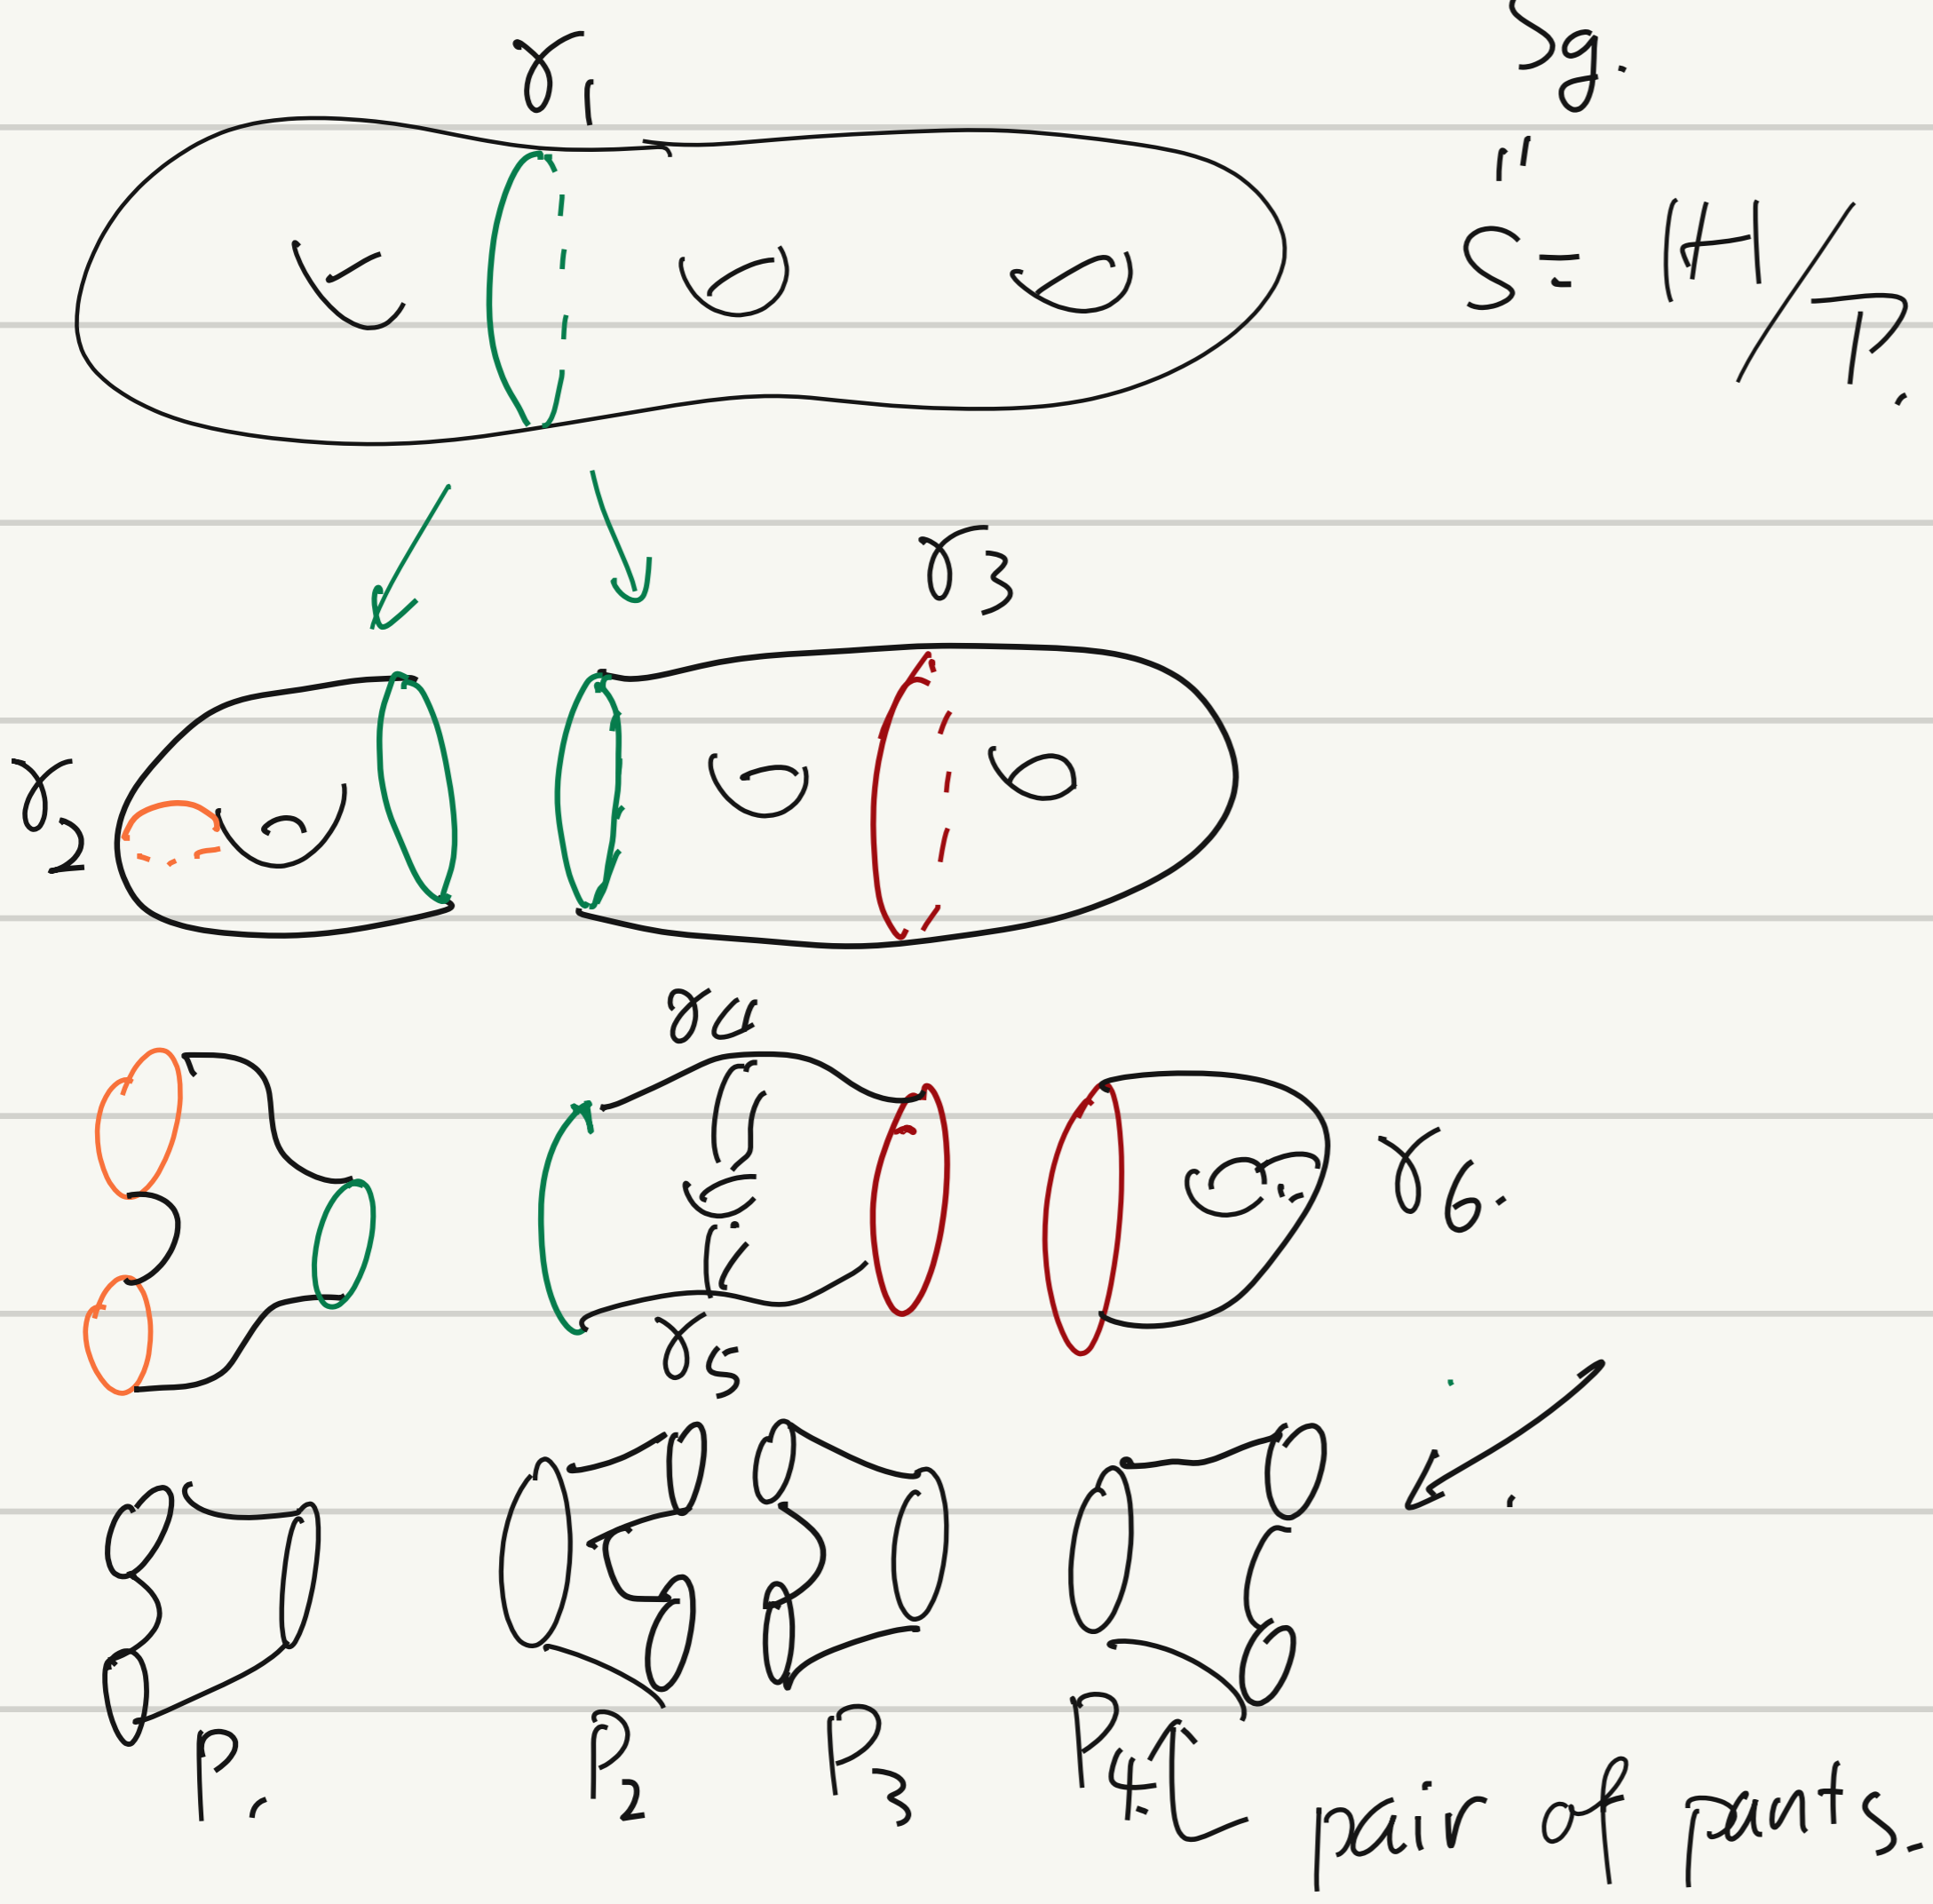 γ₁
Sg.
"
S = ℍ/Γ.
γ₃
γ₂
γ₄
γ₆.
γ₅
P₁
P₂
P₃
P₄.
pair of pants.